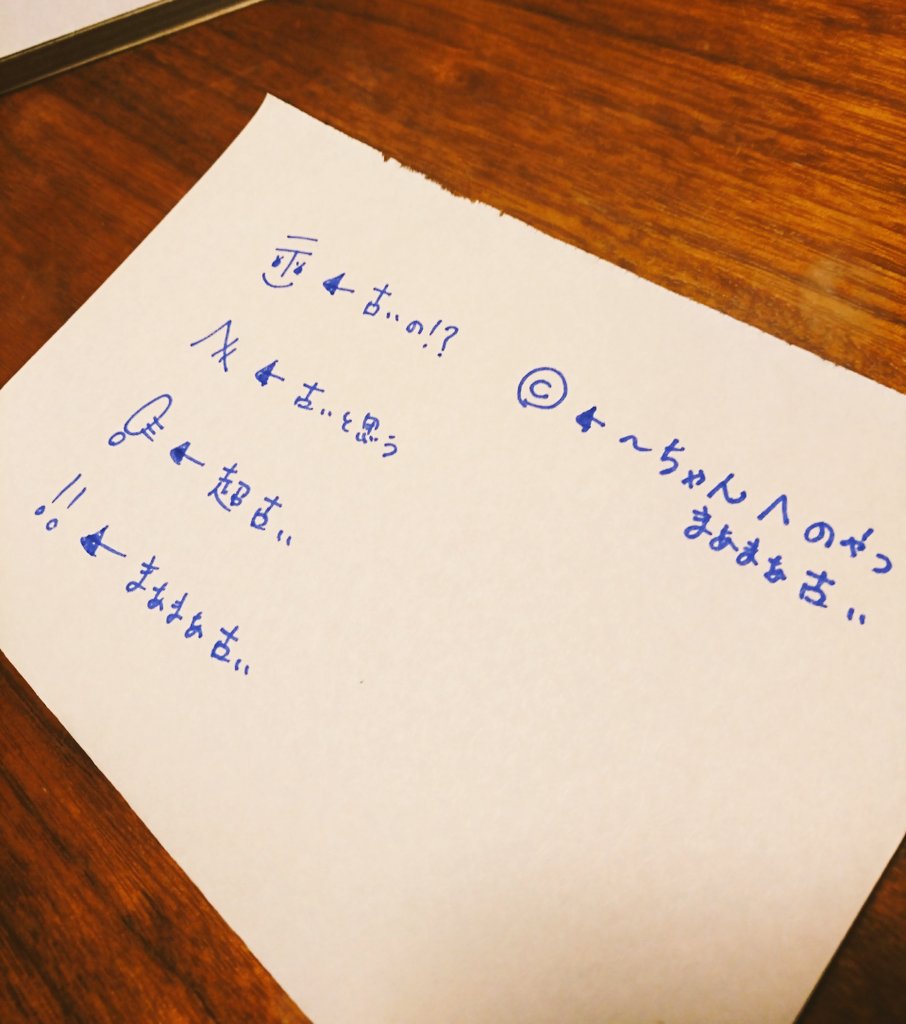 ← 古いの!?
← 古いと思う
← 超古い
!! ← まぁまぁ古い
© ← 〜ちゃんへのやつ
まぁまぁ古い